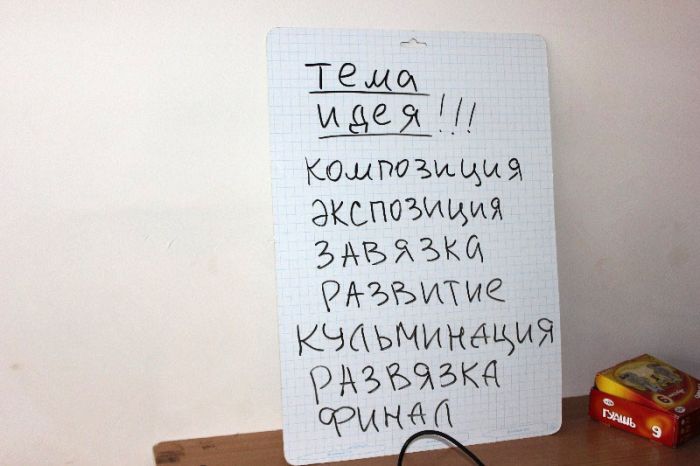 тема
идея!!!
композиция
экспозиция
завязка
развитие
кульминация
развязка
финал
ГУАШЬ 9